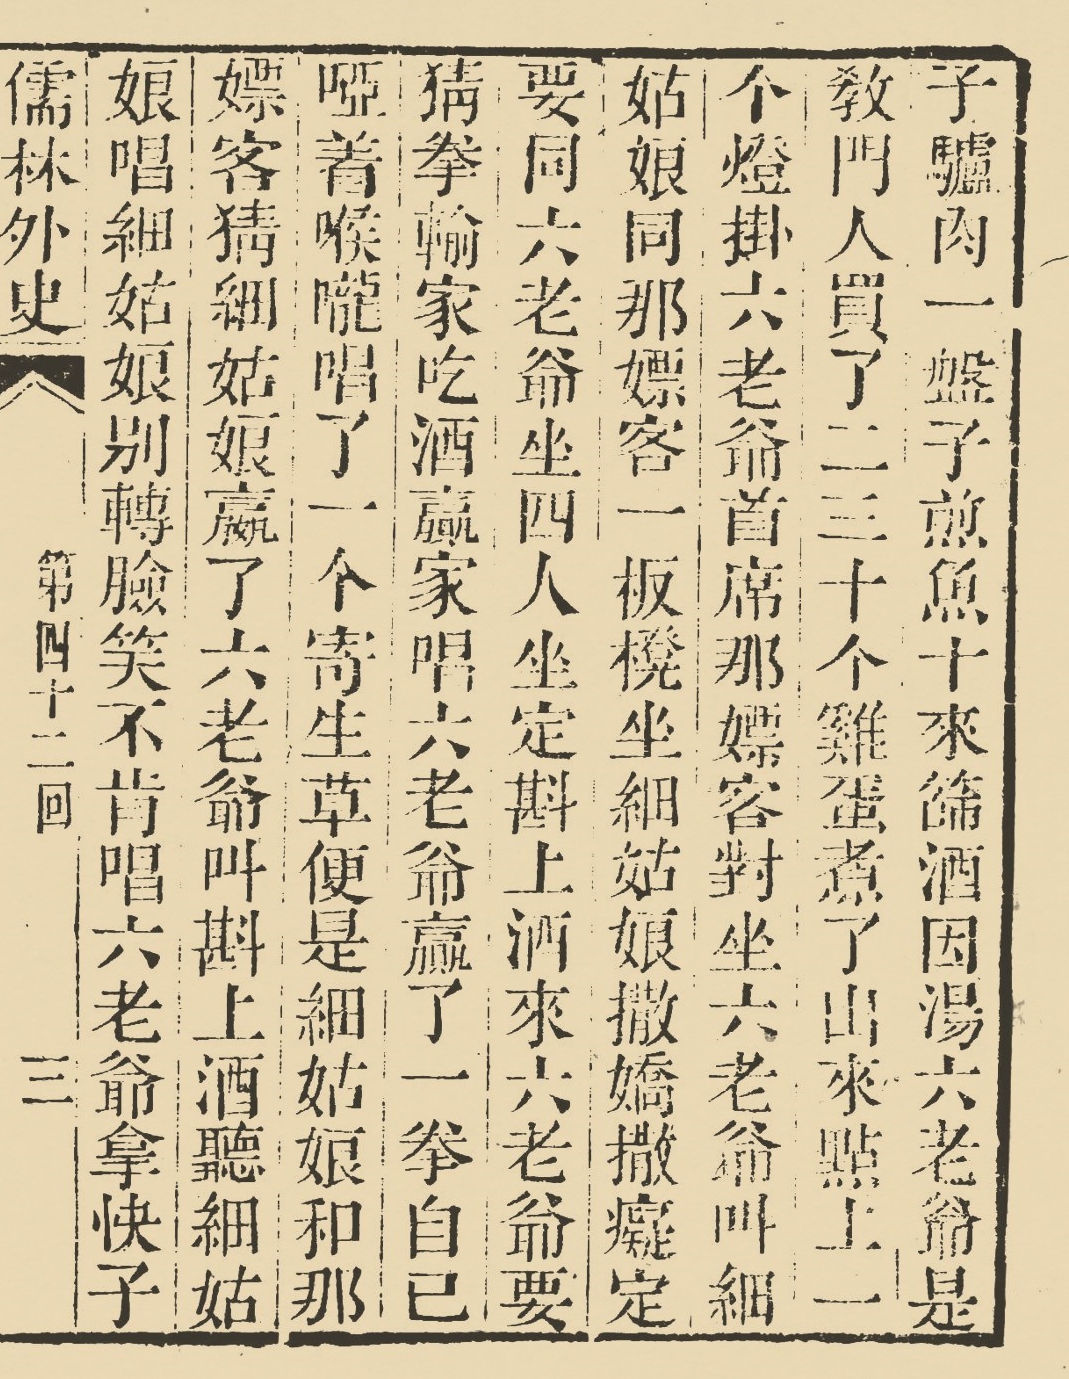 子驢肉一盤子煎魚十來篩酒因湯六老爺是
教門人買了二三十个雞蛋煮了出來點上一
个燈掛六老爺首席那嫖客對坐六老爺叫細
姑娘同那嫖客一板櫈坐細姑娘撒嬌撒癡定
要同六老爺坐四人坐定斟上酒來六老爺要
猜拳輸家吃酒贏家唱六老爺贏了一拳自己
啞着喉嚨唱了一个寄生草便是細姑娘和那
嫖客猜細姑娘贏了六老爺叫斟上酒聽細姑
娘唱細姑娘別轉臉笑不肯唱六老爺拿快子
儒林外史 第四十二回 三